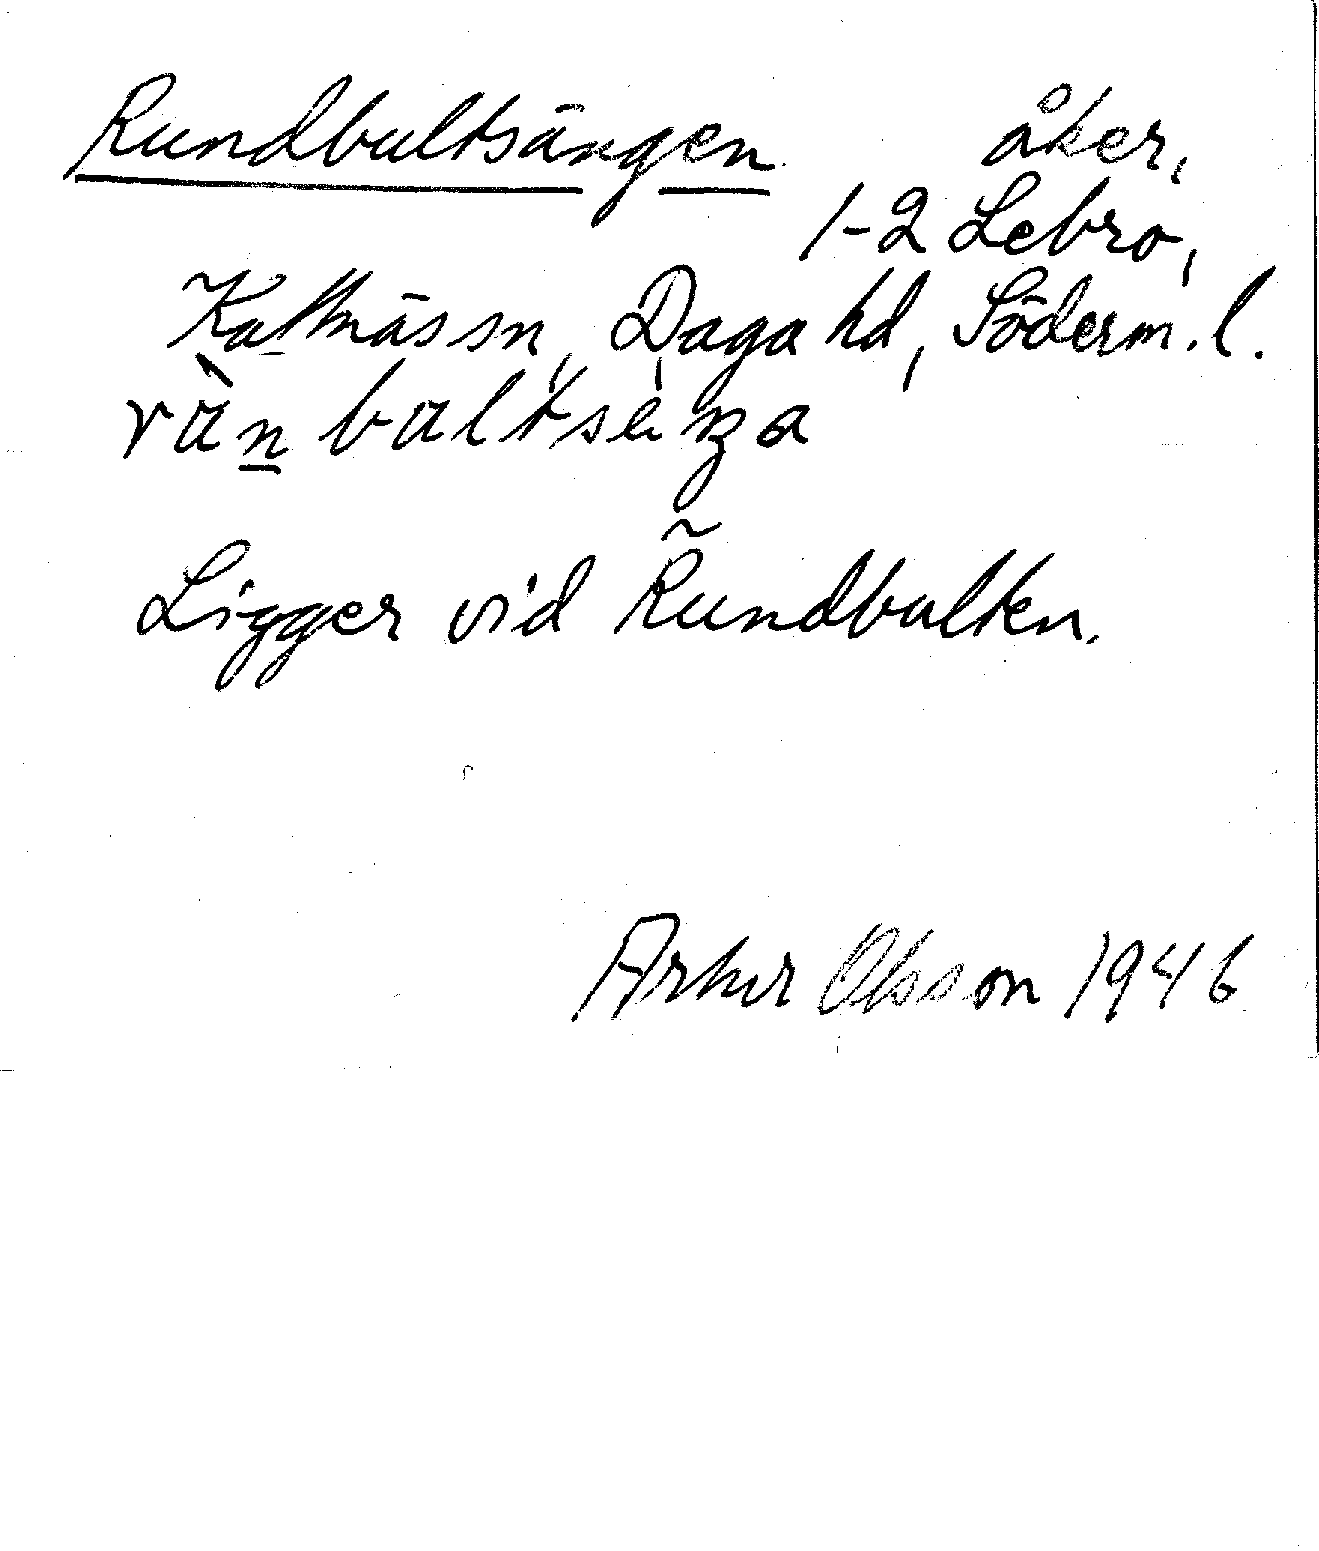 Rundbultsängen åker,
1-2 Lebro,
Kattnäs sn, Daga hd, Söderm.l.
Ligger vid R̃undbulten.
Artur Olsson 1946